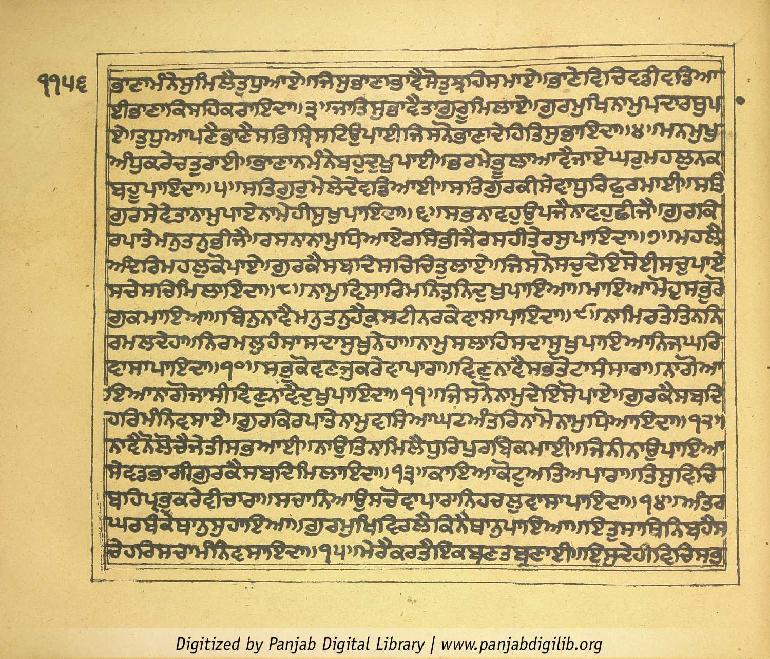 ੧੧੫੬
ਭਾਣਾਮੰਨੇਸੁਮਿਲੈਤੁਧੁਆਏ॥ਜਿਸੁਭਾਣਾਭਾਵੈਸੋਤੁਝਹਿਸਮਾਏ॥ਭਾਣੇਵਿਚਿਵਡੀਵਡਿਆ
ਈਭਾਣਾਕਿਸਹਿਕਰਾਇਦਾ॥੩॥ਜਾਤਿਸੁਭਾਵੈਤਾਗੁਰੂਮਿਲਾਏ॥ਗੁਰਮੁਖਿਨਾਮੁਪਦਾਰਥੁਪਾ
ਏ॥ਤੁਧੁਆਪਣੈਭਾਣੈਸਭਸ੍ਰਿਸਟਿਉਪਾਈਜਿਸਨੋਭਾਣਾਦੇਹਿਤਿਸੁਭਾਇਦਾ॥੪॥ਮਨਮੁਖੁ
ਅੰਧੁਕਰੇਚਤੁਰਾਈ॥ਭਾਣਾਨਮੰਨੇਬਹੁਤੁਦੁਖੁਪਾਈ॥ਭਰਮੇਭੂਲਾਆਵੈਜਾਏਘਰੁਮਹਲੁਨਕ
ਬਹੂਪਾਇਦਾ॥੫॥ਸਤਿਗੁਰੁਮੇਲੇਦੇਵਡਿਆਈ॥ਸਤਿਗੁਰਕੀਸੇਵਾਧੁਰਿਫੁਰਮਾਈ॥ਸਤਿ
ਗੁਰਸੇਵੇਤਾਨਾਮੁਪਾਏਨਾਮੇਹੀਸੁਖੁਪਾਇਦਾ॥੬॥ਸਭਨਾਵਹੁਉਪਜੈਨਾਵਹੁਛੀਜੈ॥ਗੁਰਕਿ
ਰਪਾਤੇਮਨੁਤਨੁਭੀਜੈ॥ਰਸਨਾਨਾਮੁਧਿਆਏਰਸਿਭੀਜੈਰਸਹੀਤੇਰਸੁਪਾਇਦਾ॥੭॥ਮਹਲੈ
ਅੰਦਰਿਮਹਲੁਕੋਪਾਏ॥ਗੁਰਕੈਸਬਦਿਸਚਿਚਿਤੁਲਾਏ॥ਜਿਸਨੋਸਚੁਦੇਇਸੋਈਸਚੁਪਾਏ
ਸਚੇਸਚਿਮਿਲਾਇਦਾ॥੮॥ਨਾਮੁਵਿਸਾਰਿਮਨਿਤਨਿਦੁਖੁਪਾਇਆ॥ਮਾਇਆਮੋਹੁਸਭੁਰੋ
ਗੁਕਮਾਇਆ॥ਬਿਨੁਨਾਵੈਮਨੁਤਨੁਹੈਕੁਸਟੀਨਰਕੇਵਾਸਾਪਾਇਦਾ॥੯॥ਨਾਮਿਰਤੇਤਿਨਨਿ
ਰਮਲਦੇਹਾ॥ਨਿਰਮਲਹੰਸਾਸਦਾਸੁਖੁਨੇਹਾ॥ਨਾਮੁਸਲਾਹਿਸਦਾਸੁਖੁਪਾਇਆਨਿਜਘਰਿ
ਵਾਸਾਪਾਇਦਾ॥੧੦॥ਸਭੁਕੋਵਣਜੁਕਰੇਵਾਪਾਰਾ॥ਵਿਣੁਨਾਵੈਸਭੁਤੋਟਾਸੰਸਾਰਾ॥ਨਾਗੋਆ
ਇਆਨਾਗੋਜਾਸੀਵਿਣੁਨਾਵੈਦੁਖੁਪਾਇਦਾ॥੧੧॥ਜਿਸਨੋਨਾਮੁਦੇਇਸੋਪਾਏ॥ਗੁਰਕੈਸਬਦਿ
ਹਰਿਮੰਨਿਵਸਾਏ॥ਗੁਰਕਿਰਪਾਤੇਨਾਮੁਵਸਿਆਘਟਅੰਤਰਿਨਾਮੋਨਾਮੁਧਿਆਇਦਾ॥੧੨॥
ਨਾਵੈਨੋਲੋਚੈਜੇਤੀਸਭਆਈ॥ਨਾਉਤਿਨਾਮਿਲੈਧੁਰਿਪੁਰਬਿਕਮਾਈ॥ਜਿਨੀਨਾਉਪਾਇਆ
ਸੇਵਡਭਾਗੀਗੁਰਕੈਸਬਦਿਮਿਲਾਇਦਾ॥੧੩॥ਕਾਇਆਕੋਟੁਅਤਿਅਪਾਰਾ॥ਤਿਸੁਵਿਚਿ
ਬਹਿਪ੍ਰਭੁਕਰੇਵੀਚਾਰਾ॥ਸਚਾਨਿਆਉਸਚੋਵਾਪਾਰਾਨਿਹਚਲੁਵਾਸਾਪਾਇਦਾ॥੧੪॥ਅੰਤਰ
ਘਰਬੰਕੇਥਾਨੁਸੁਹਾਇਆ॥ਗੁਰਮੁਖਿਵਿਰਲੈਕਿਨੈਥਾਨੁਪਾਇਆ॥ਇਤੁਸਾਥਿਨਿਬਹੈਸਾ
ਚੇਹਰਿਸਚਾਮੰਨਿਵਸਾਇਦਾ॥੧੫॥ਮੇਰੈਕਰਤੈਇਕਬਣਤਬਣਾਈ॥ਇਸੁਦੇਹੀਵਿਚਿਸਭ
Digitized by Panjab Digital Library | www.panjabdigilib.org